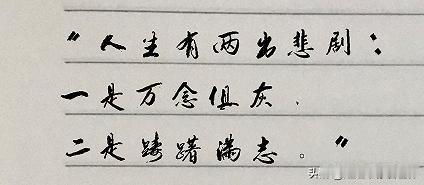 “人生有两出悲剧：
一是万念俱灰，
二是踌躇满志。”
头